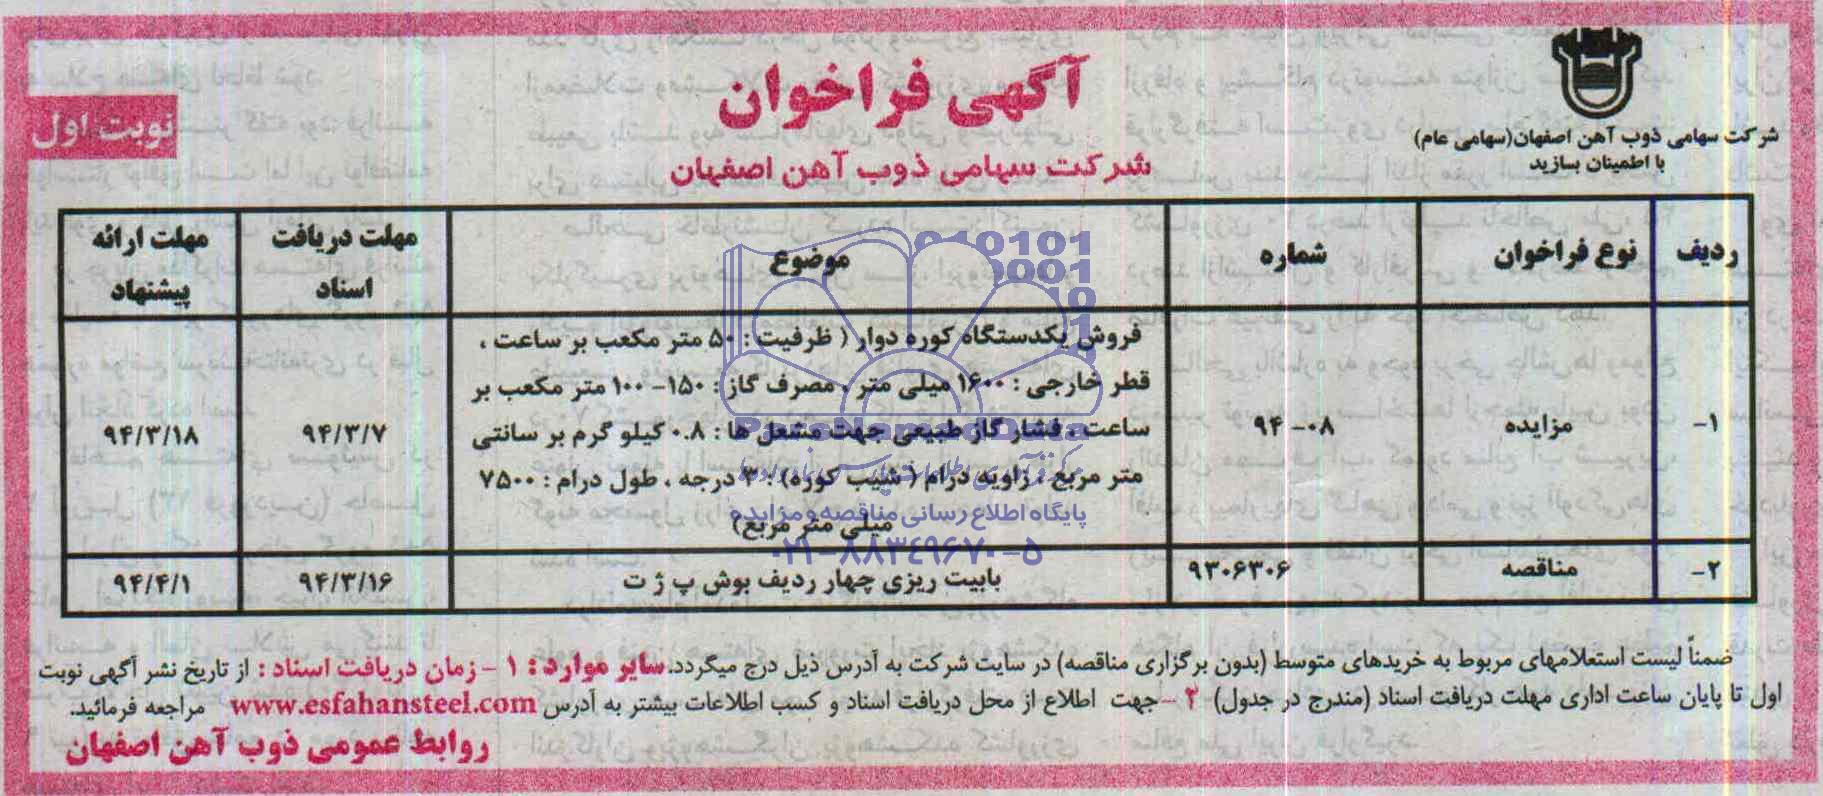 آگهی فراخوان
شرکت سهامی ذوب آهن اصفهان
نوبت اول
شرکت سهامی ذوب آهن اصفهان(سهامی عام)
با اطمینان بسازید
ردیف
نوع فراخوان
شماره
موضوع
مهلت دریافت
اسناد
مهلت ارائه
پیشنهاد
۱-
مزایده
۹۴-۰۰۸
فروش یکدستگاه کوره دوار ( ظرفیت : ۵۰ متر مکعب بر ساعت ،
قطر خارجی : ۱۶۰۰ میلی متر ، مصرف گاز : ۱۵۰-۱۰۰ متر مکعب بر
ساعت ، فشار گاز طبیعی جهت مشعل ها : ۰.۸ کیلو گرم بر سانتی
متر مربع ، زاویه درام ( شیب کوره) : ۳ درجه ، طول درام : ۷۵۰۰
میلی متر مربع)
۹۴/۳/۷
۹۴/۳/۱۸
۲-
مناقصه
۹۳۰۶۳۰۶
بابیت ریزی چهار ردیف بوش پ ژ ت
۹۴/۳/۱۶
۹۴/۴/۱
ضمناً لیست استعلامهای مربوط به خریدهای متوسط (بدون برگزاری مناقصه) در سایت شرکت به آدرس ذیل درج میگردد. سایر موارد : ۱ - زمان دریافت اسناد : از تاریخ نشر آگهی نوبت
اول تا پایان ساعت اداری مهلت دریافت اسناد (مندرج در جدول) ۲ - جهت اطلاع از محل دریافت اسناد و کسب اطلاعات بیشتر به آدرس www.esfahansteel.com مراجعه فرمائید.
روابط عمومی ذوب آهن اصفهان
ParsNamadData
پایگاه اطلاع رسانی مناقصه و مزایده
۰۲۱-۸۸۳۴۹۶۷۰-۵